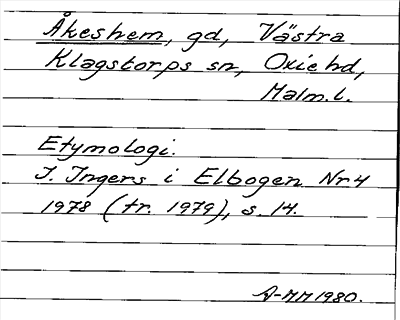 Åkeshem, gd, Västra
Klagstorps sn, Oxie hd,
Malm.l.
Etymologi.
I. Ingers i Elbogen Nr 4
1978 (tr. 1979), s. 14.
A-MM 1980.